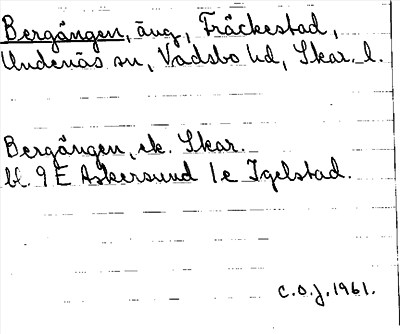 Bergången, äng, Fräckestad,
Undenäs sn, Vadsbo hd, Skar. l.
Bergången, ek. Skar.
bl. 9 E Askersund 1e Igelstad.
C.O.J. 1961.